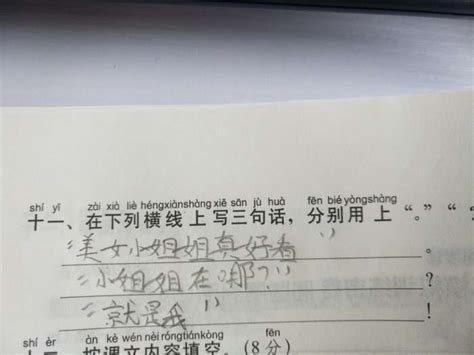 shí yī zài xià liè héngxiànshàng xiě sān jù huà fēn bié yòngshàng
十一、在下列横线上写三句话，分别用上“。”“
“美女小姐姐真好看” 。
“小姐姐在哪?” ?
“就是我” !
shí èr àn kè wén nèi róng tiánkòng fēn
十二、按课文内容填空。(8分)